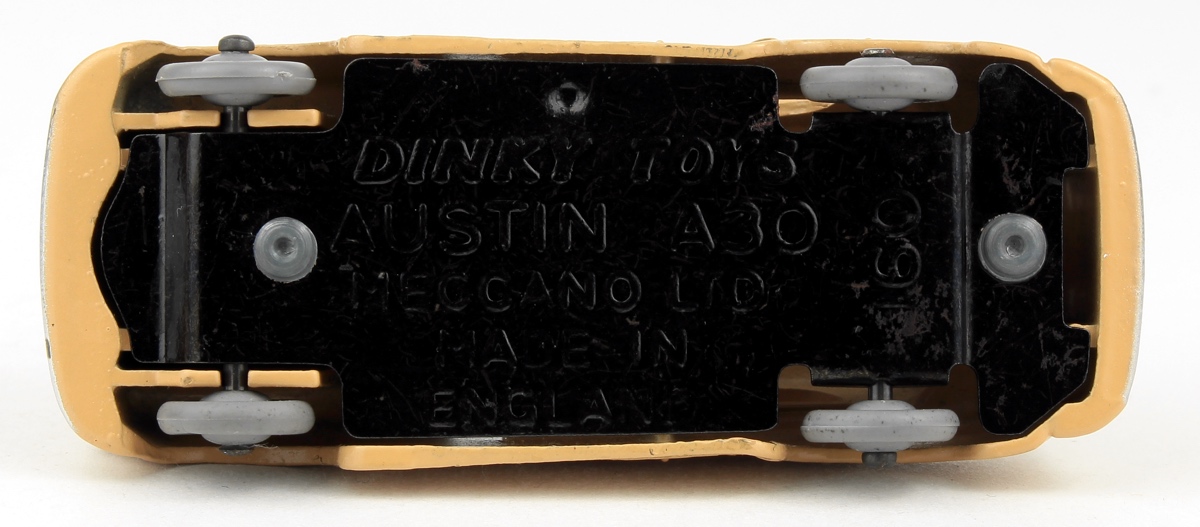 DINKY TOYS
AUSTIN A30
MECCANO LTD
MADE IN
ENGLAND
160